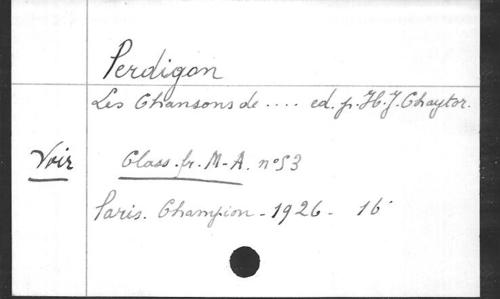 Perdigon
Les Chansons de .... ed. p. H. J. Chaytor.
Voir Class. fr. M-A. n° 53
Paris. Champion - 1926 - 16°